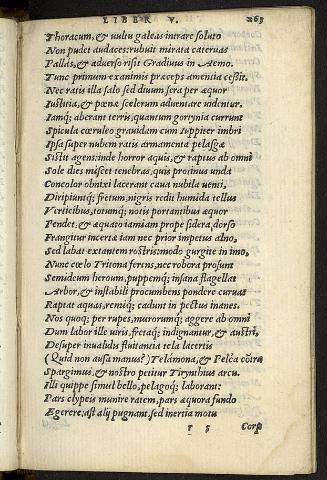 LIBER V. 263
Thoracum, & uultu galeas intrare soluto
Non pudet audaces: rubuit mirata cateruas
Pallas, & aduerso risit Gradiuus in Aemo.
Tunc primum exanimis præceps amentia cessit.
Nec ratis illa salo sed dium sera per æquor
Iustitia, & pœnæ scelerum aduentare uidentur.
Iamq; aberant terris, quantum gortynia currunt
Spicula cœruleo grauidam cum Iuppiter imbri
Ipsa super nubem ratis armamenta pelasgæ
Sistit agens: inde horror aquis, & raptus ab omni
Sole dies miscet tenebras, quis protinus unda
Concolor obnixi lacerant caua nubila uenti,
Diripiuntq; fretum, nigris redit humida tellus
Verticibus, totumq; notis portantibus æquor
Pendet, & æquato iamiam prope sidera, dorso
Frangitur incerta iam nec prior impetus alno,
Sed labat extantem rostris: modo gurgite in imo,
Nunc cœlo Tritona ferens, nec robora prosunt
Semideum heroum, puppemq; insana flagellat
Arbor, & instabili procumbens pondere curuas
Raptat aquas, remiq; cadunt in pectus inanes.
Nos quoq; per rupes, murorumq; aggere ab omni
Dum labor ille uiris, fretaq; indignantur, & austri,
Desuper inualidis fluitantia tela lacertis
(Quid non ausa manus?) Telamona, & Pelea cōtra
Spargimus, & nostro petitur Tirynthius arcu.
Illi quippe simul bello, pelagoq; laborant:
Pars clypeis munire ratem, pars æquora fundo
Egerere: ast alij pugnant, sed inertia motu
r 5 Corp